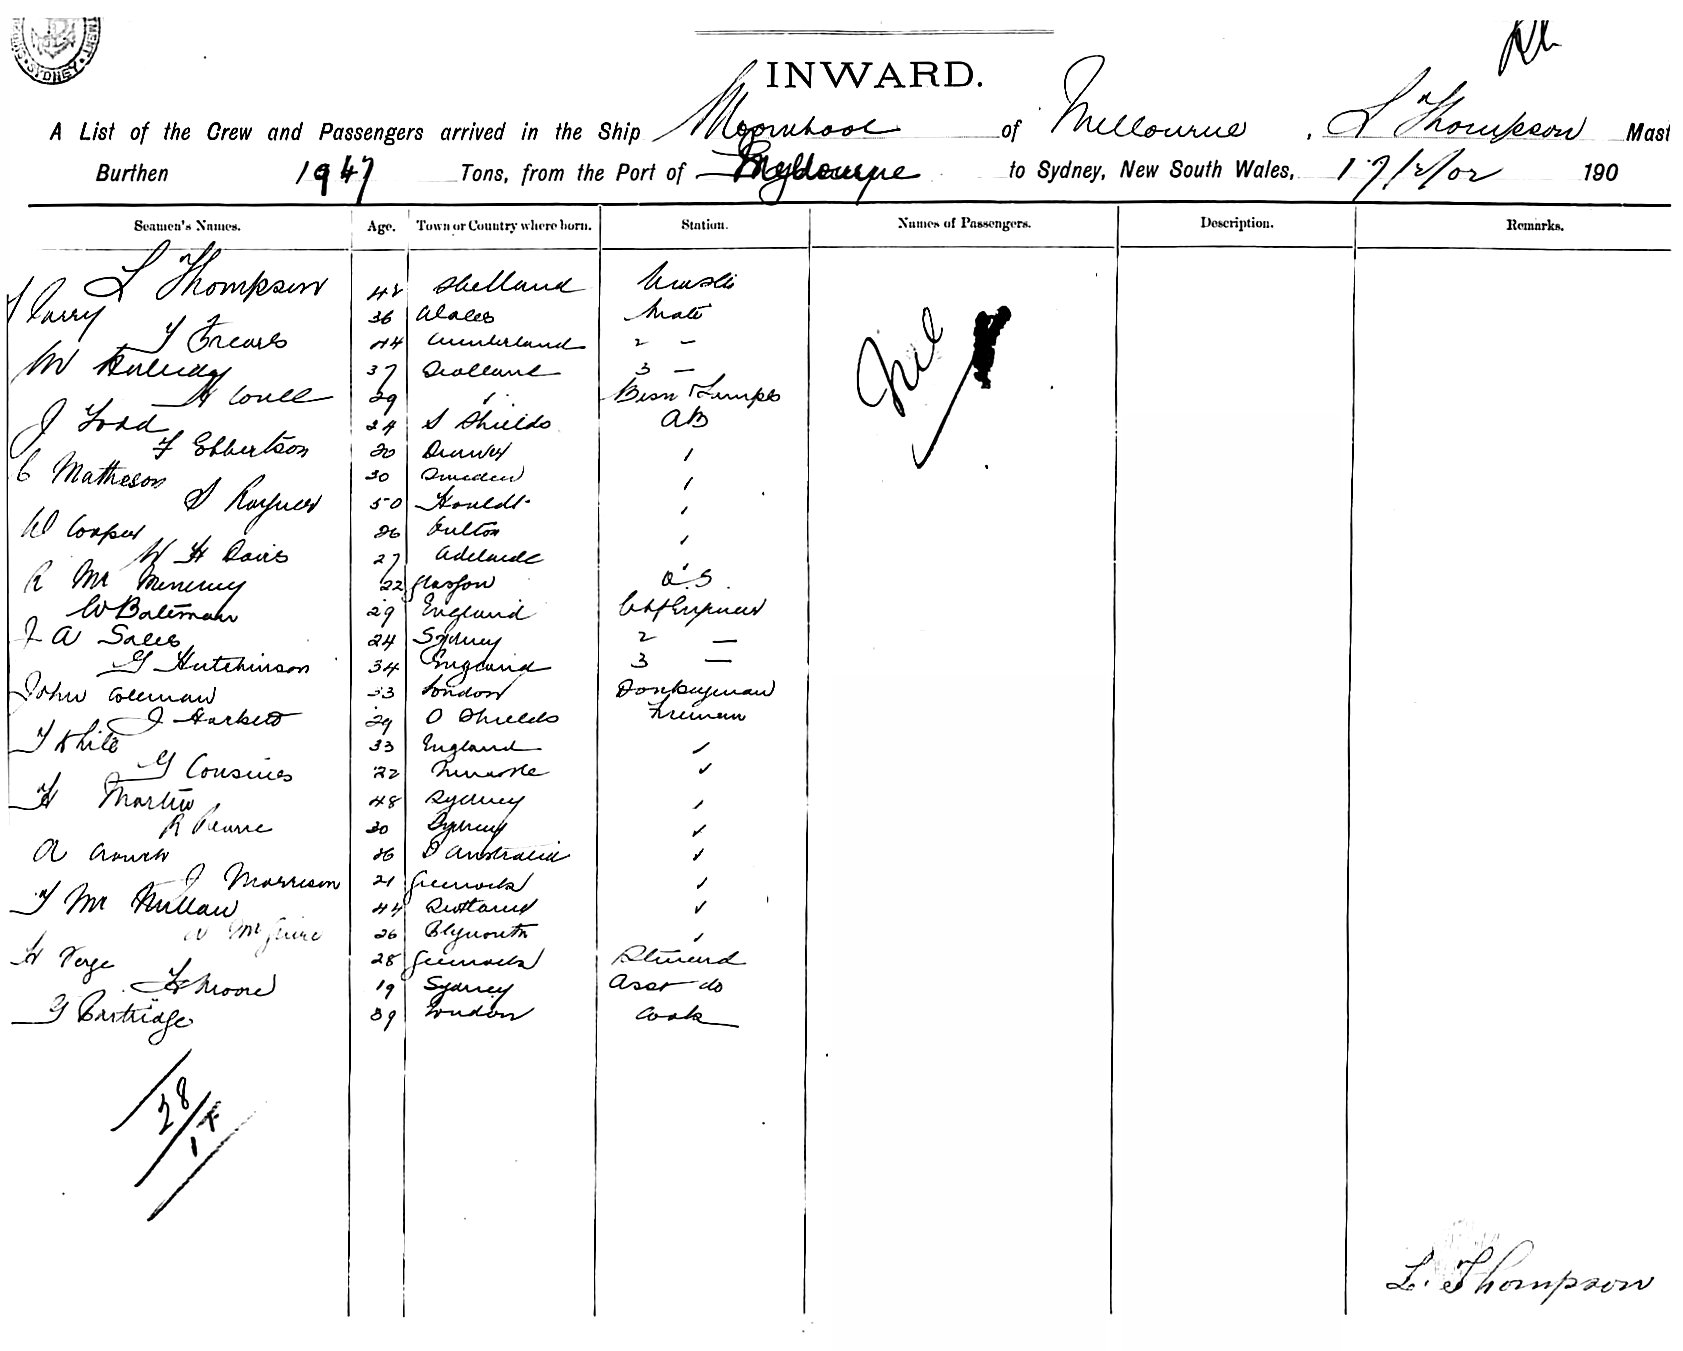 SYDNEY
INWARD.
A List of the Crew and Passengers arrived in the Ship Moorabool of Melbourne, L Thompson Mast
Burthen 1947 Tons, from the Port of Melbourne to Sydney, New South Wales, 17/2/02 190
Seamen's Names. Age. Town or Country where born. Station. Names of Passengers. Description. Remarks.
L Thompson 48 Shetland Master
Parry 36 Wales Mate Nil
T Frears 44 Cumberland 2 –
W 37 Scotland 3 –
H Coull 29 "
J Todd 24 S Shields AB
F Ebbertson 30 "
C Matheson 30 Sweden "
S Rayner 50 "
W Cooper 26 "
W H Davis 27 Adelaide "
R Mc 22 Glasgow O.S.
W Bateman 29 England Chf Engineer
J A Sales 24 Sydney 2 —
G Hutchinson 34 England 3 —
John Coleman 33 London Donkeyman
J Harkess 29 S Shields Fireman
T White 33 England "
G Cousins 22 Newcastle "
H Martin 48 Sydney "
R Pearce 30 Sydney "
A 26 S Australia "
J Morrison 21 Greenock "
T Mc Millan 44 Scotland "
McGuire 26 Plymouth "
H Verge 28 Greenock Steward
H Moore 19 Sydney Asst do
G Partridge 39 London Cook
28
L. Thompson